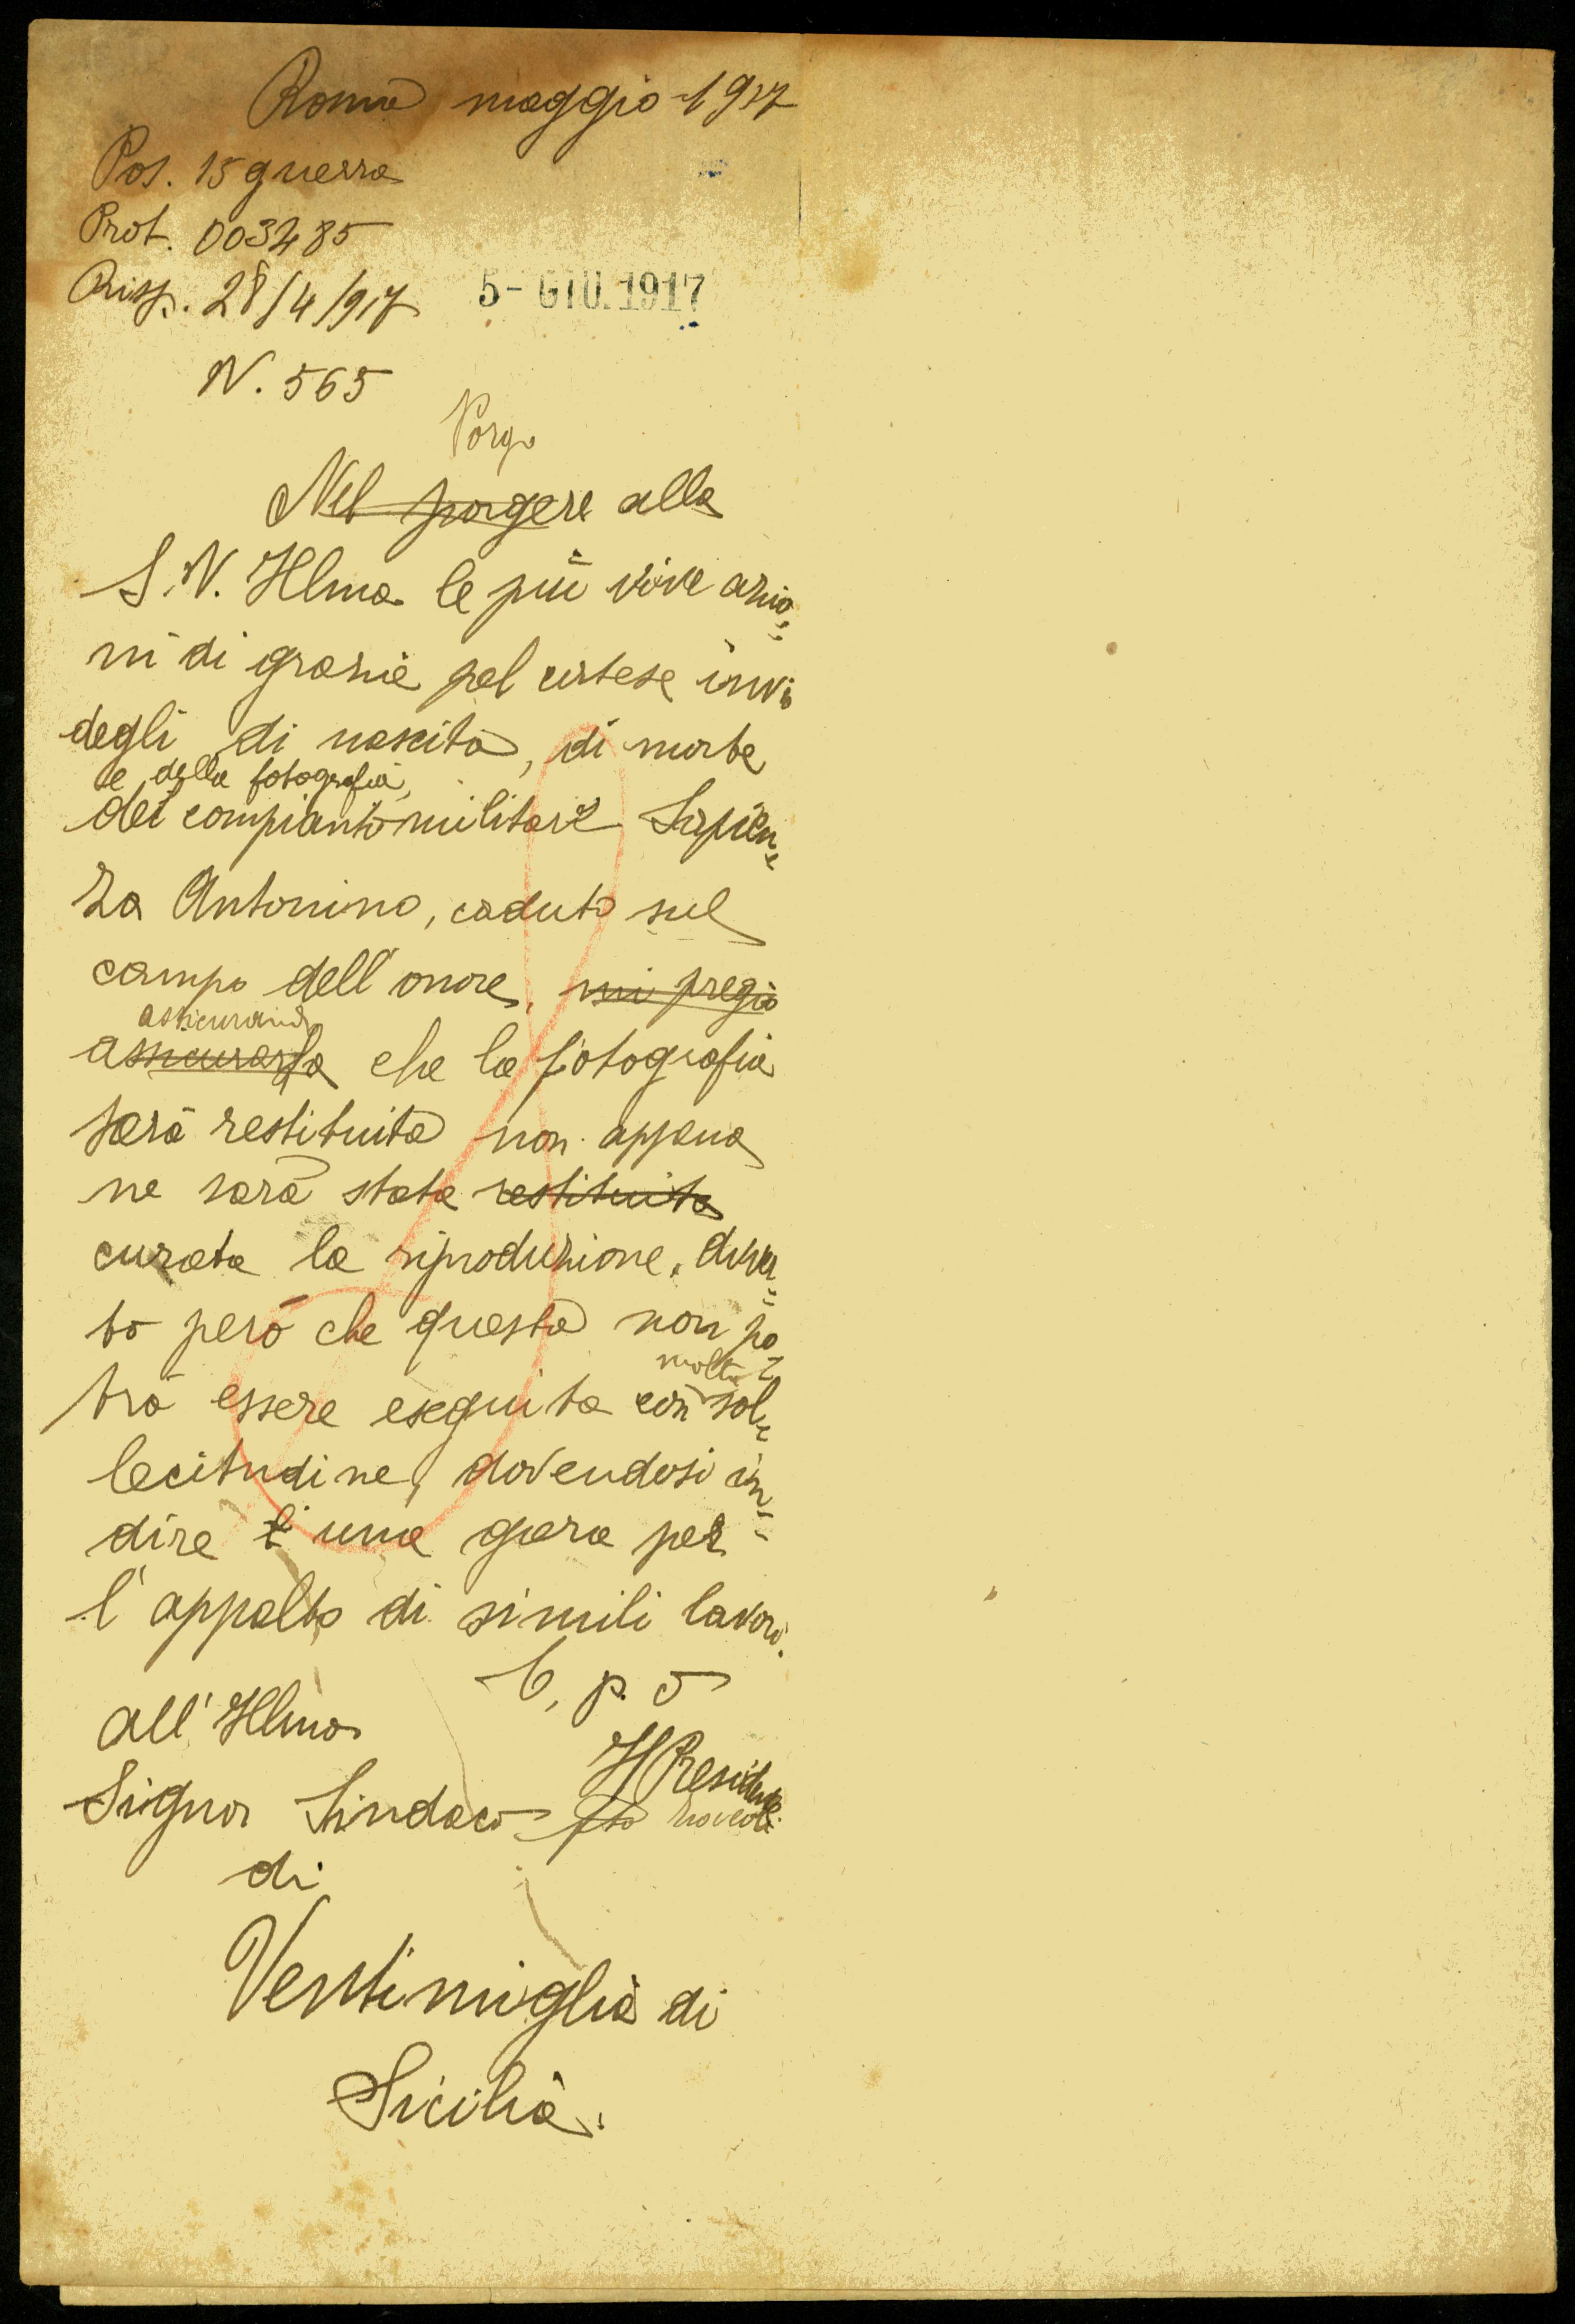 Roma maggio 1917
Pos. 15 guerra
Prot. 003485
Risp. 28/4/917
5 - GIU. 1917
N. 565
Porgo
Nel porgere alla
S. V. Illma le più vive azio=
ni di grazie pel cortese invio
degli di nascita, di morte
e della fotografia,
del compianto militare Sapien=
za Antonino, caduto sul
campo dell'onore, mi pregio
assicurando
assicurarla che la fotografia
sarà restituita non appena
ne sarà stata restituita
curata la riproduzione.
to però che questa non po=
molta
trà essere eseguita con sol=
lecitudine, dovendosi in=
dire una gara per
l'appalto di simili lavori.
C. p. o
All'Illmo
Il Presidente
Signor Sindaco fto
di
Ventimiglia di
Sicilia.